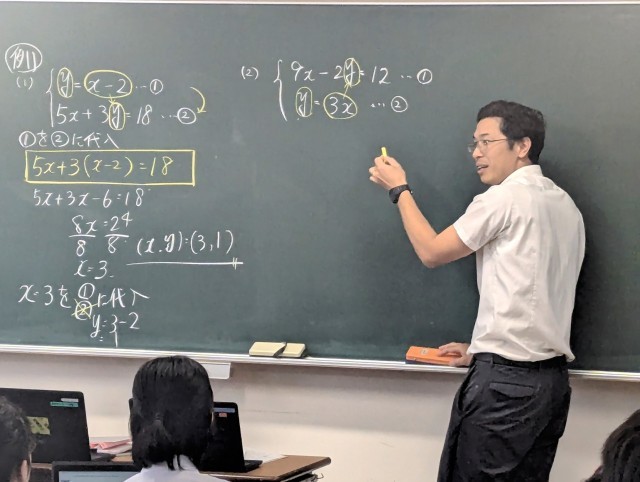 例1
(1) y = x-2 …①
5x+3y=18 …②
①を②に代入
5x+3(x-2)=18
5x+3x-6=18
8x=24
8 8
x=3
(x,y)=(3,1)
x=3を①に代入
②
y=3-2
(2) 9x-2y=12 …①
y=3x …②